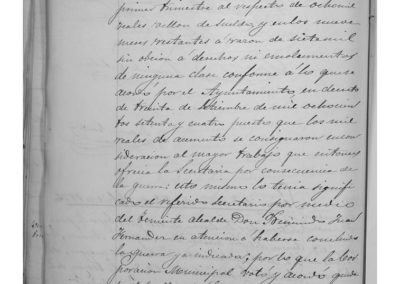 primer trimestre al respecto de ochomil
reales vellon de sueldo, y en los nueve
meses restantes a razon de sietemil
sin obcion a derechos ni emolumentos
de ninguna clase conforme á lo que se
acordó por el Ayuntamiento, en decreto
de treinta de Diciembre de mil ochocien
tos setenta y cuatro puesto que los mil
reales de aumento se consignaron en con
sideracion al mayor trabajo que entonces
ofrecia la Secretaria por consecuencia de
la guerra: esto mismo lo tenia signifi
cado el referido Secretario por medio
del Teniente Alcalde Don Juan
Fernandez en atencion a haberse concluido
la guerra ya indicada; por lo que la Cor
poracion Municipal votó y acordó quede